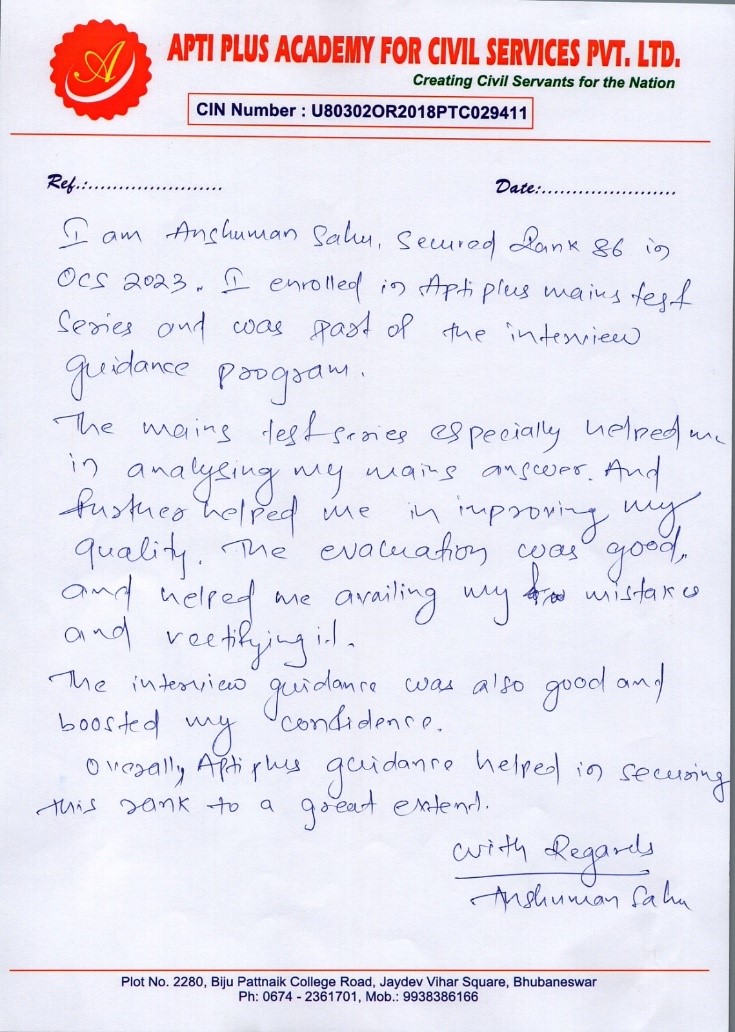 A
APTI PLUS ACADEMY FOR CIVIL SERVICES PVT. LTD.
Creating Civil Servants for the Nation
CIN Number : U80302OR2018PTC029411
Ref.:....................... Date:.......................
I am Anshuman Sahu, Secured Rank 86 in
OCS 2023. I enrolled in Aptiplus mains test
Series and was part of the interview
guidance program.
The mains test series especially helped me
in analysing my mains answer. And
further helped me in improving my
quality. The evacuation was good,
and helped me availing my mistakes
and rectifying it.
The interview guidance was also good and
boosted my confidence.
Overally, Aptiplus guidance helped in securing
this rank to a great extend.
With Regards
Anshuman Sahu
Plot No. 2280, Biju Pattnaik College Road, Jaydev Vihar Square, Bhubaneswar
Ph: 0674 - 2361701, Mob.: 9938386166